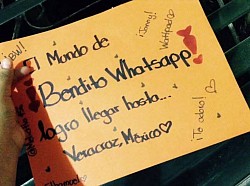 ¡Jenny!
Wattpad
El Mundo de
Bendito Whatsapp
logro llegar hasta...
¡Te adoro!
Veracruz, México